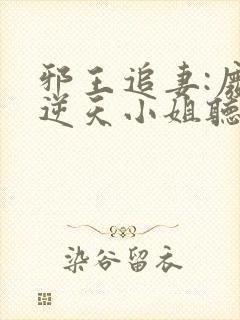 邪王追妻:废
逆天小姐聽
染谷留衣